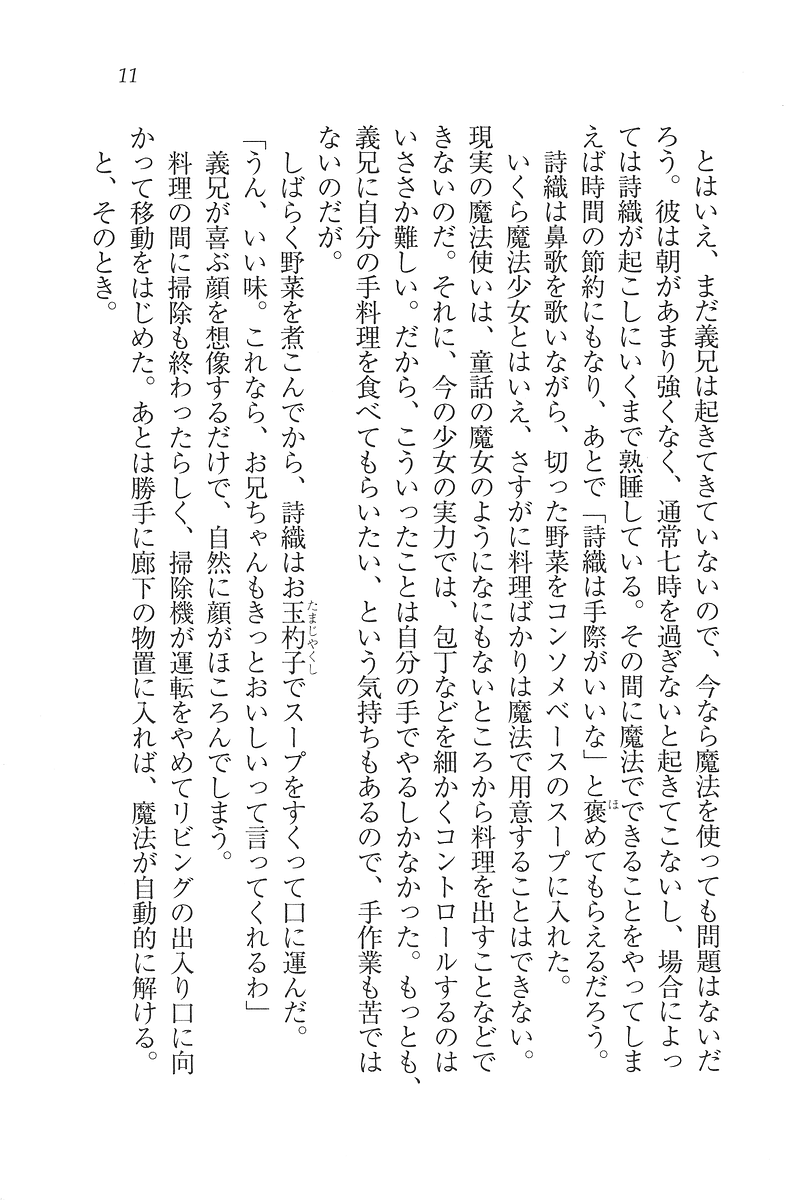 11
とはいえ、まだ義兄は起きてきていないので、今なら魔法を使っても問題はないだ
ろう。彼は朝があまり強くなく、通常七時を過ぎないと起きてこないし、場合によっ
ては詩織が起こしにいくまで熟睡している。その間に魔法でできることをやってしま
えば時間の節約にもなり、あとで「詩織は手際がいいな」と褒めてもらえるだろう。
ほ
詩織は鼻歌を歌いながら、切った野菜をコンソメベースのスープに入れた。
いくら魔法少女とはいえ、さすがに料理ばかりは魔法で用意することはできない。
現実の魔法使いは、童話の魔女のようになにもないところから料理を出すことなどで
きないのだ。それに、今の少女の実力では、包丁などを細かくコントロールするのは
いささか難しい。だから、こういったことは自分の手でやるしかなかった。もっとも、
義兄に自分の手料理を食べてもらいたい、という気持ちもあるので、手作業も苦では
ないのだが。
しばらく野菜を煮こんでから、詩織はお玉杓子でスープをすくって口に運んだ。
たまじゃくし
「うん、いい味。これなら、お兄ちゃんもきっとおいしいって言ってくれるわ」
義兄が喜ぶ顔を想像するだけで、自然に顔がほころんでしまう。
料理の間に掃除も終わったらしく、掃除機が運転をやめてリビングの出入り口に向
かって移動をはじめた。あとは勝手に廊下の物置に入れば、魔法が自動的に解ける。
と、そのとき。